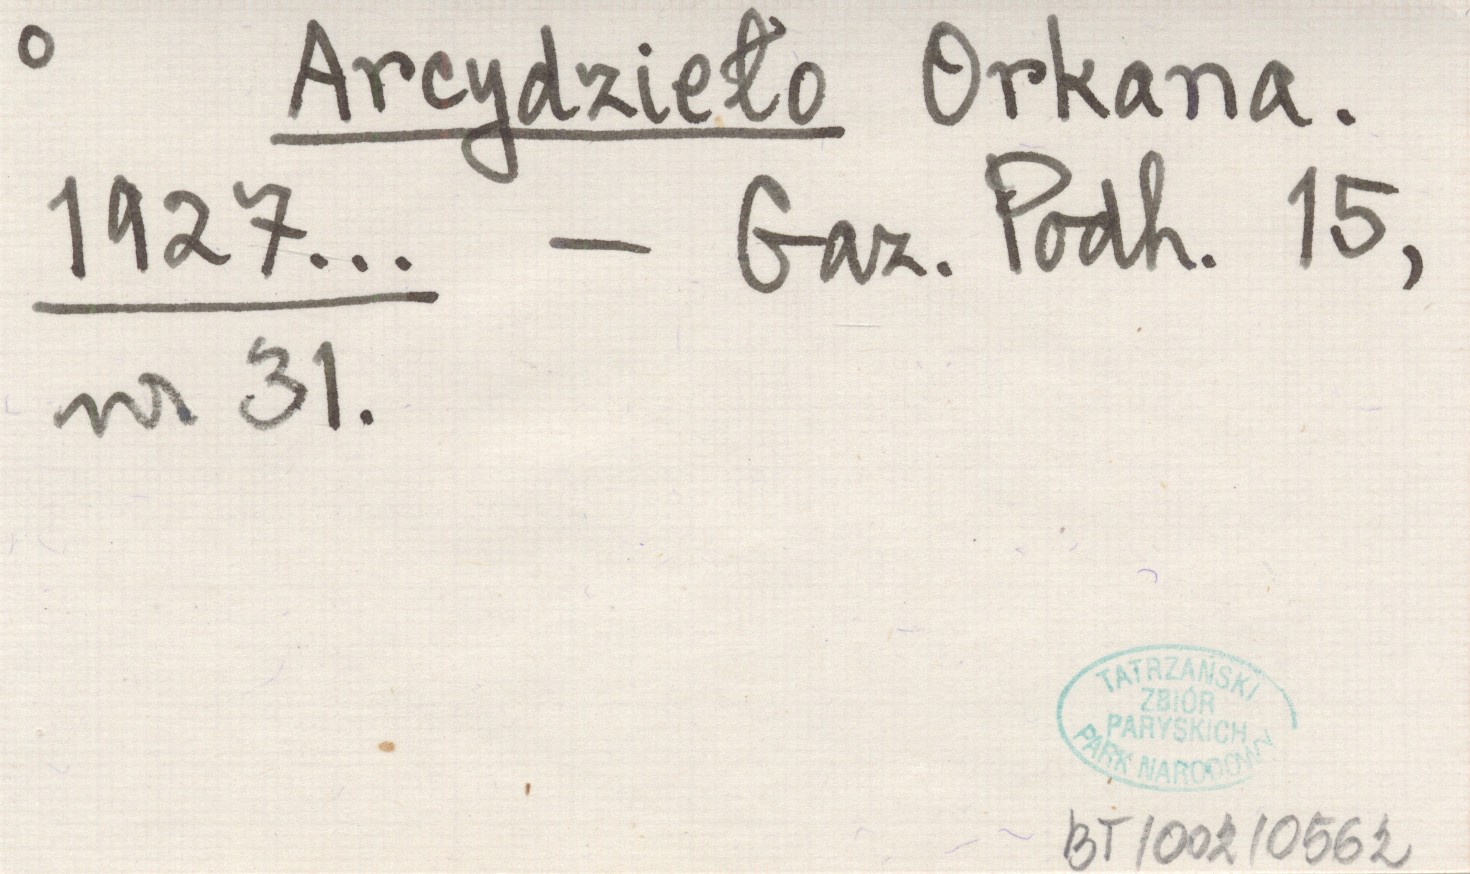 ° Arcydzieło Orkana.
1927... – Gaz. Podh. 15,
nr 31.
TATRZAŃSKI
ZBIÓR
PARYSKICH
PARK NARODOWY
BT/002/0562